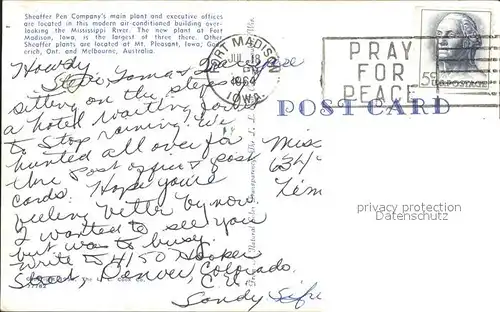 Sheaffer Pen Company's main plant and executive offices
are located in this modern air-conditioned building over-
looking the Mississippi River. The new plant at Fort
Madison, Iowa, is the largest of three there. Other
Sheaffer plants are located at Mt. Pleasant, Iowa; God-
erich, Ont. and Melbourne, Australia.
FORT MADISON
JUL 18
1964
IOWA
PRAY
FOR
PEACE
5¢ U.S. POSTAGE
POST CARD
Howdy
sitting on the steps of
a hotel waiting for it
to stop raining! We
hunted all over for
this post office & post
cards. Hope you're
feeling better by now.
I wanted to see you
but was to busy.
Write to 4150 Hooker
Street, Denver, Colorado.
Sandy
Miss
634
privacy protection
Datenschutz